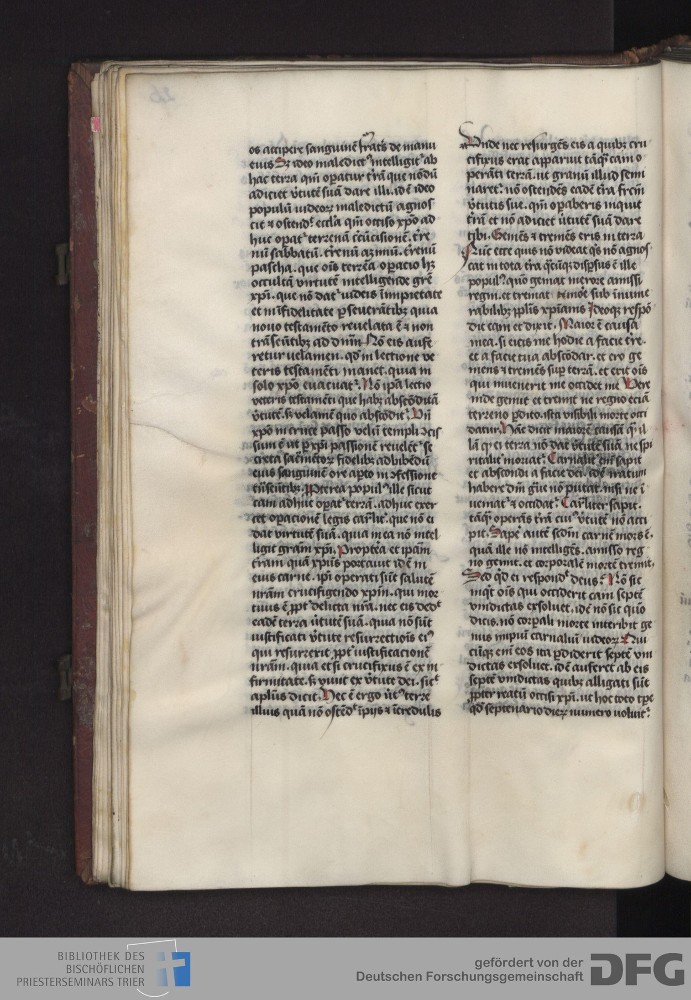 os accipere sanguinē fratris de manu
eius Sꝫ ideo maledictꝰ intelligit᷑ ab
hac terra qm̄ opatur t̄rā que nōdū
adiciet v̓tutē suā dare illi. id ē ideo
populū iudeoꝝ maledictū agnos
cit ⁊ ostend᷑ eccl̓a qm̄ occiso xp̄o ad
huc opat᷑ terrenā c̄cūcisionē. t̓re
nū sabbatū. t̓renū azimū. t̓renū
pascha. que oīs terrēa opacio hꝫ
occultā virtutē intelligende grē
xp̄i. que nō dat᷑ iudeis ī impietate
et in īfidelitate ꝑseverātibꝫ quia
novo testamēto revelata ē ⁊ non
trāseūtibꝫ ad dn̄m Nō eis aufe
retur velamen. qd̓ in lectione ve
teris testamēti manet. quia in
solo xp̄o evacuat᷑. Nō ip̄a lectio
veteris testamēti que habꝫ abscōditā
v̓tutē. sꝫ velamē quo abscōdit᷑. Vn̄
xp̄o in cruce passo velū templi scis
sum ē ut ꝑ xp̄i passionē revelēt᷑ se
creta sacm̄etoꝝ fidelibꝫ ad bibēdū
eius sanguinē ore apto in ꝯfessione
trāseūtibꝫ. ꝓpterea populꝰ ille sicut
cain adhuc opat᷑ terrā. adhuc exer
cet opacionē legis carl̓it. que nō ei
dat virtutē suā. quia in ea nō intel
ligit grām xp̄i. Propt̓ea et ip̄am
t̓ram quā xp̄us portavit id ē in
eius carne. ip̄i operati sūt salutē
nrām crucifigendo xp̄m. qui mor
tuus ē ꝓpt̓ delicta nr̄a. nec eis ded᷑
eadē terra v̓tutē suā. quia nō sūt
iustificati v̓tute resurrectiōis eiꝰ
qui resurrexit ꝓpt̓ iustificacionē
nrām. quia etsi crucifixus ē ex in
firmitate. sꝫ vivit ex v̓tute dei. sic᷑
apl̓us dicit. Hec ē ergo v̓tꝰ terre
illius quā nō ostēd᷑ īpijs ⁊ īcredulis
Unde nec resurgēs eis a quibꝫ cru
cifixus erat apparuit tāqꝫ cain o
peranti terrā. ut granū illud semi
naret. nō ostendēs eadē t̓ra fructū
v̓tutis sue. qm̄ opaberis inquit
t̓rā et nō adiciet v̓tutē suā dare
tibi. Gemēs ⁊ tremēs eris in terra
Nūc ecce quis nō videat qs nō agnos
cat in tota t̓ra dispsus ē ille
populꝰ quō gemat merore amissi
regni. et tremat timore sub innume
rabilibꝫ ppl̓is xp̄ianis Ideoqꝫ respō
dit cain et dixit. Maior ē causa
mea. si eicis me hodie a facie t̓re.
et a facie tua abscōdar. et ero ge
mens ⁊ tremēs sup terrā. et erit oīs
qui invenerit me occidet me Vere
inde gemit et tremit ne regno eciā
terreno ꝑdito. ista visibili morte occi
datur. Hāc dicit maiorē causā qꝫ il
lā qꝫ ei terra nō dat v̓tutē suā. ne spi
ritalit̓ moriat᷑. Carnalit̓ em̄ sapit
et abscondi a facie dei. id ē iratum
habere dm̄ gūe nō putat. nisi ne ī
veniat᷑ ⁊ occidat᷑. Carl̓iter sapit.
tāqꝫ operās t̓rā cuiꝰ v̓tutē nō acci
pit. Sape autē scd̓m carnē mors ē.
quā ille nō intelligēs. amisso reg
no gemit. et corporalē mortē tremit.
Sed qd̓ ei respond᷑ deus? Nō sic
inqt oīs qui occiderit cain septē
vindictas exsolvet. id ē nō sic quō
dicis. nō corp̄ali morte interibit ge
nus impiū carnaliū iudeoꝝ Qui
cūqꝫ em̄ eos ita ꝑdiderit septē vin
dictas exsolvet. id ē auferet ab eis
septē vindictas quibꝫ alligati sūt
ꝓpter reatū occisi xp̄i. ut hoc toto tp̄e
qd̓ septenario dieꝝ numero volvit᷑.
BIBLIOTHEK DES
BISCHÖFLICHEN
PRIESTERSEMINARS TRIER
gefördert von der
Deutschen Forschungsgemeinschaft
DFG